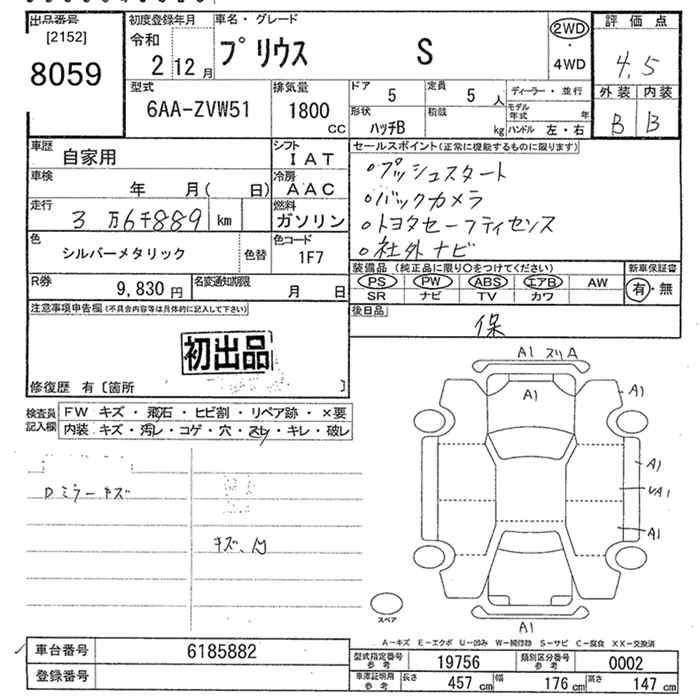 出品番号 初度登録年月 車名・グレード 2WD 評価点
[2152] 令和 プリウス S 4.5
8059 2 12月 4WD
型式 排気量 ドア 定員 ディーラー・並行 外装 内装
6AA-ZVW51 1800 CC 5 5人 モデル年式 年 B B
形状 積載
ハッチB kg ハンドル 左・右
車歴 自家用 シフト IAT セールスポイント(正常に機能するものに限ります)
車検 年 月( 日) 冷房 AAC ○プッシュスタート
走行 3万6千889 km 燃料 ガソリン ○バックカメラ
○トヨタセーフティセンス
色 シルバーメタリック 色替 色コード 1F7 ○社外ナビ
装備品(純正品に限り○をつけてください) 新車保証書
R券 9,830円 名変通知期限 月 日 PS PW ABS エアB AW 有・無
SR ナビ TV カワ
注意事項申告欄(不具合内容等は具体的に記入して下さい) 後日品
保
初出品
修復歴 有[箇所 ]
A1 スリA
A1 A1
検査員記入欄 FW キズ・飛石・ヒビ割・リペア跡・×要
内装 キズ・汚レ・コゲ・穴・スレ・キレ・破レ
A1
Dミラーキズ A1
A1
キズ、
スペア
A1
A-キズ E-エクボ U-凹み W-補修跡 S-サビ C-腐食 XX-交換済
車台番号 6185882 型式指定番号参考 19756 類別区分番号参考 0002
登録番号 車庫証明用参考 長さ 457cm 幅 176cm 高さ 147cm